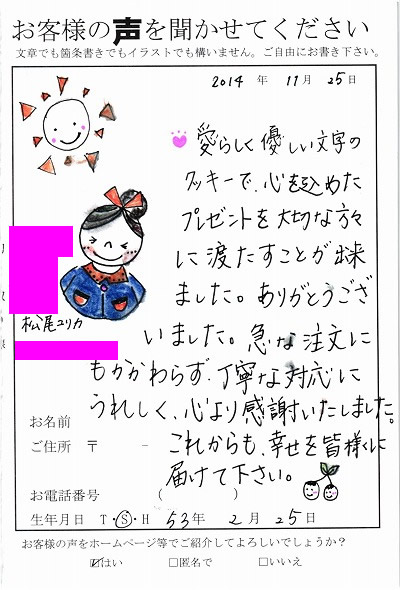 お客様の声を聞かせてください
文章でも箇条書きでもイラストでも構いません。ご自由にお書き下さい。
2014 年 11月 25日
愛らしく優しい文字の
クッキーで、心を込めた
プレゼントを大切な方々
に渡たすことが出来
ました。ありがとうござ
いました。急な注文に
もかかわらず、丁寧な対応に
うれしく、心より感謝いたしました。
これからも、幸せを皆様に
届けて下さい。
松尾ユリカ
お名前
ご住所 〒 -
お電話番号 ( )
生年月日 T・S・H 53年 2月 25日
お客様の声をホームページ等でご紹介してよろしいでしょうか?
☑はい □匿名で □いいえ